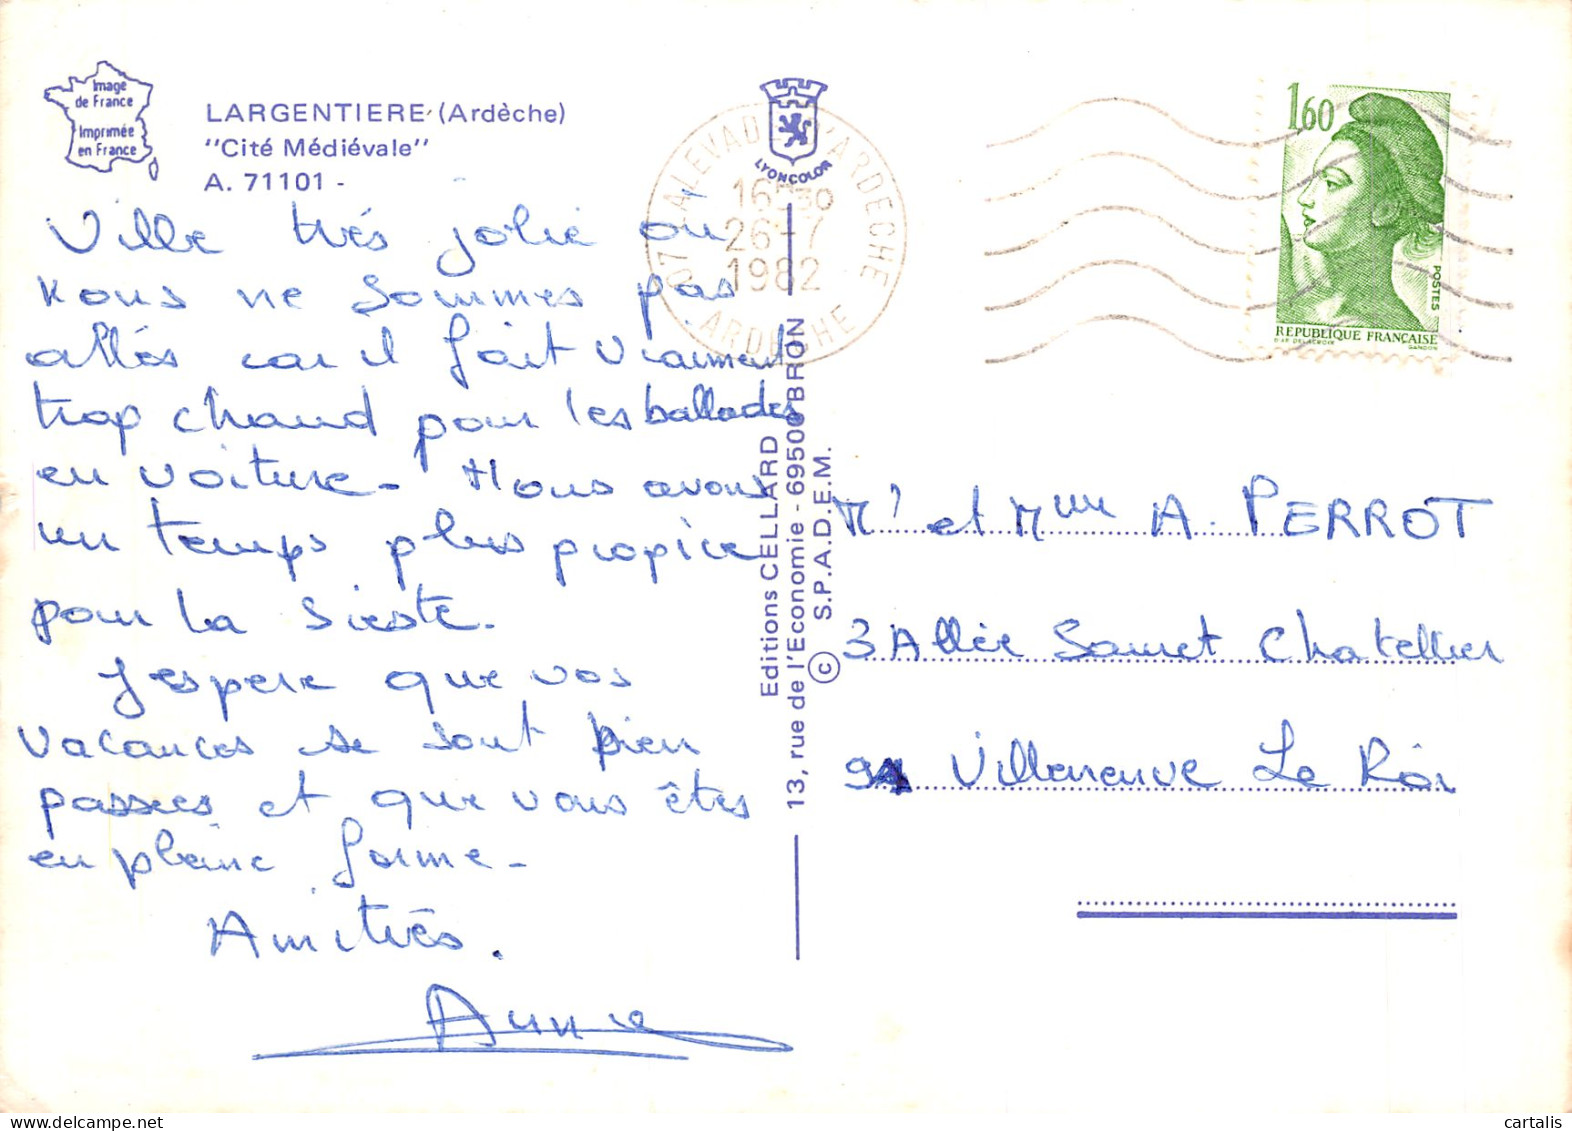 Image
de France
Imprimée
en France
LARGENTIERE (Ardèche)
"Cité Médiévale"
A. 71101 -
Ville très jolie où
nous ne sommes pas
allés car il fait vraiment
trop chaud pour les ballades
en voiture - Nous avons
un temps plus propice
pour la sieste.
J'espere que vos
vacances se sont bien
passées et que vous êtes
en pleine forme -
Amitiés.
Annie
LYONCOLOR
07-ALEVARD D'ARDECHE
16H30
26-7
1982
ARDECHE
Editions CELLARD
13, rue de l'Economie - 69500 BRON
© S.P.A.D.E.M.
1,60
POSTES
REPUBLIQUE FRANÇAISE
D'AP. DELACROIX GANDON
Mr et Mme A. PERROT
3 Allée Chatellier
94 Villeneuve Le Roi
cartalis